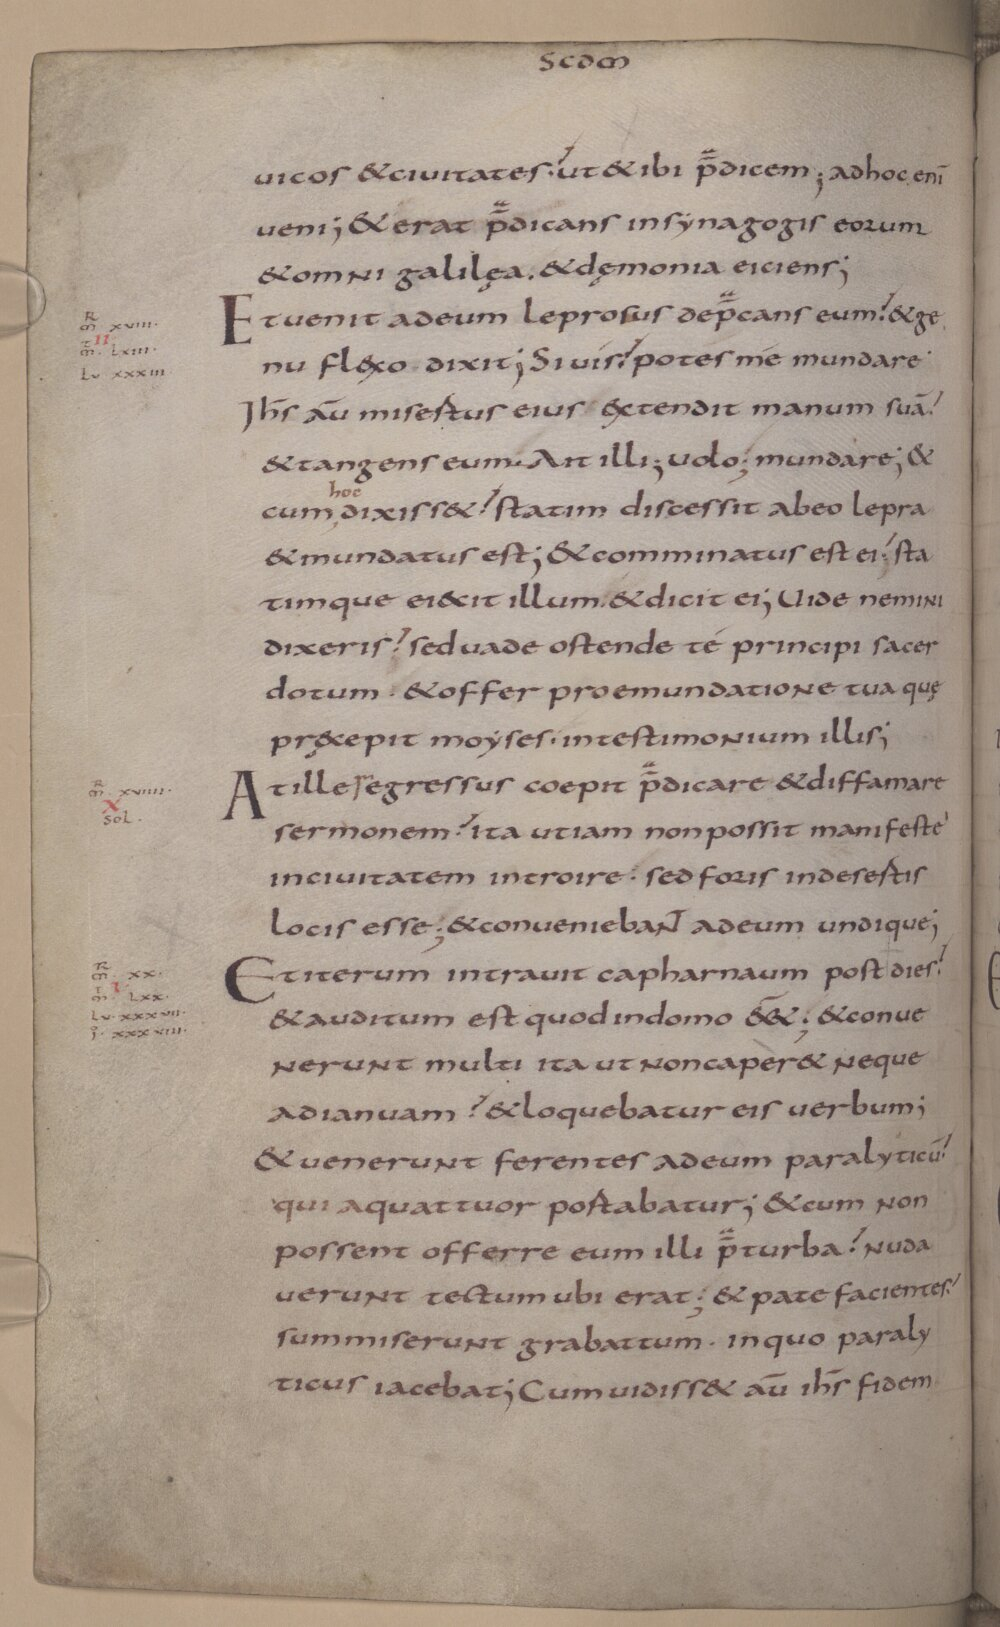 Scdm
uicos &ciuitates. ut&ibi p̄dicem; adhoc enī
ueni; &erat p̄dicans insÿnagogis eorum
&omni galilęa. &dęmonia eiciens;
Etuenit adeum leprosus dep̄cans eum. &ge
R
m̄ xviii.
II
m̄. Lxiii.
Lu xxxiii
nu flexo dixit; Si uis potes mé mundare
Ihs̄ aū misertus eius extendit manum suā.
&tangens eum. Ait illi; uolo; mundare; &
hoc
cum, dixiss& statim discessit abeo lepra
&mundatus est; &comminatus est ei. sta
timque eiecit illum. &dicit ei; Uide nemini
dixeris. sed uade ostende té principi sacer
dotum. &offer proemundatione tua quę
pręcepit moÿses. intestimonium illis;
Atille egressus coepit p̄dicare &diffamare
R
m̄. xviiii.
X
Sol.
sermonem. ita utiam non possit manifeste
inciuitatem introire. sed foris indesertis
locis esse; &conuenieban̄t adeum undique;
Etiterum intrauit capharnaum post dies.
R
m̄. xx.
I
m̄. Lxx.
Lu. xxxvii.
J. xxxviii.
&auditum est quod indomo ēē&; &conue
nerunt multi ita ut noncaper& neque
adianuam. &loquebatur eis uerbum;
&uenerunt ferentes adeum paralyticū.
qui aquattuor portabatur; &cum non
possent offerre eum illi p̄turba. nuda
uerunt tectum ubi erat; &pate facientes.
summiserunt grabattum. inquo paraly
ticus iacebat; Cum uidiss& aū ihs̄ fidem